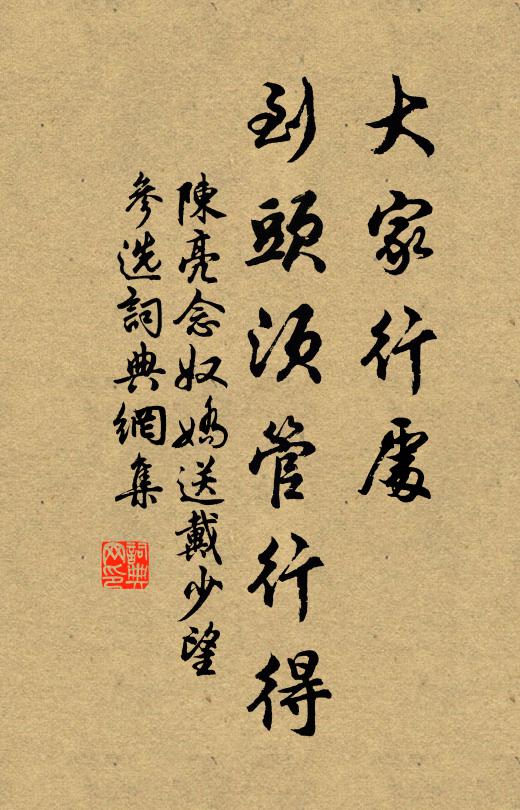 大家行處
到頭須管行得
陳亮念奴嬌送戴少望
參选詞典網集
詞典
网印